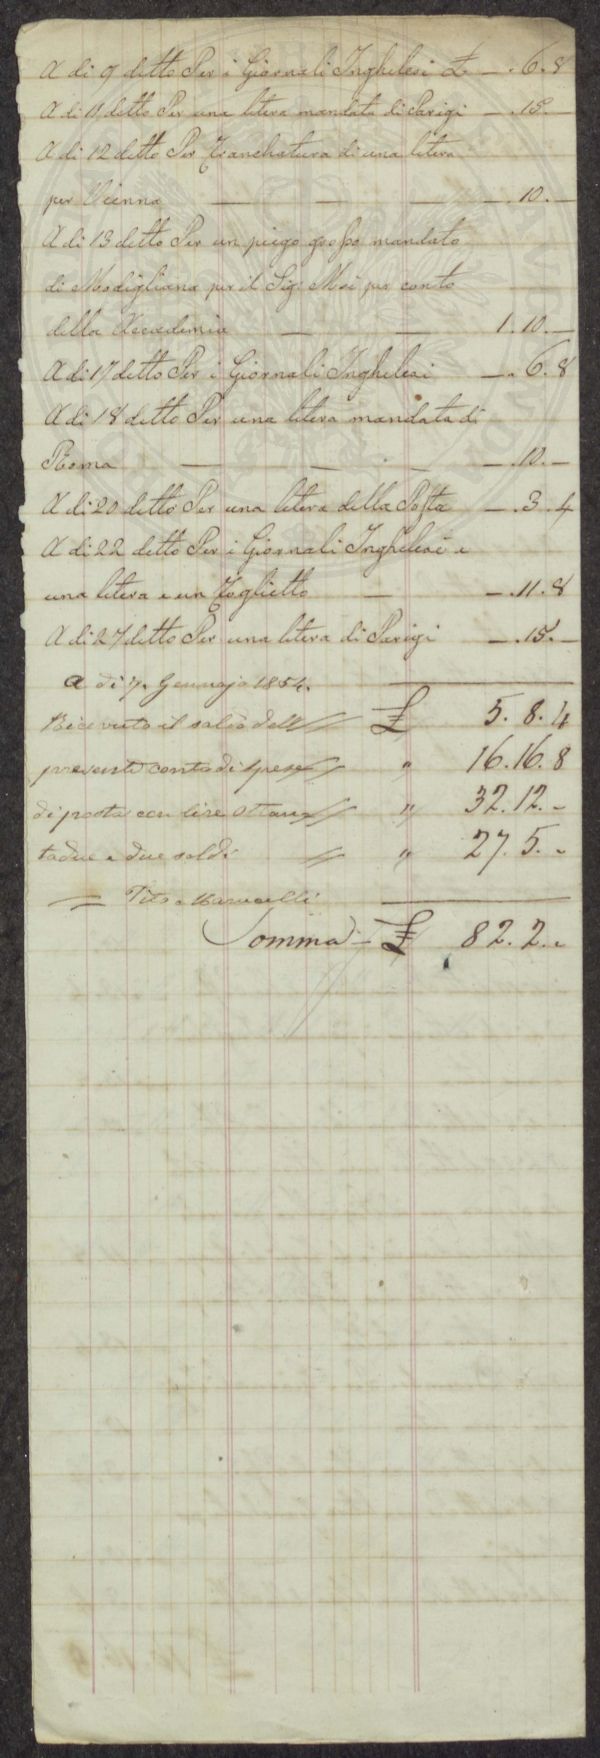 A di 9 detto Per i Giornali Inghilesi £ —. 6. 8
A di 11 detto Per una litera mandata di Parigi —. 15. —
A di 12 detto Per Francatura di una litera
per Vienna — — — —. 10. —
A di 13 detto Per un piego grosso mandato
di Modigliana per il Sig: Mei per conto
della Accademia — — 1. 10. —
A di 17 detto Per i Giornali Inghilesi —. 6. 8
A di 18 detto Per una litera mandata di
Roma — — — —. 10. —
A di 20 detto Per una litera della Posta —. 3. 4
A di 22 detto Per i Giornali Inghilesi e
una litera e un Foglietto — —. 11. 8
A di 27 detto Per una litera di Parigi —. 15. —
A di 7. Gennajo 1854.
Ricevuto il saldo dell £ 5. 8. 4
presente conto di spese " 16. 16. 8
di posta con lire ottan " 32. 12. -
tadue e due soldi " 27. 5. -
Tito Marucelli
Somma — £ 82. 2. -